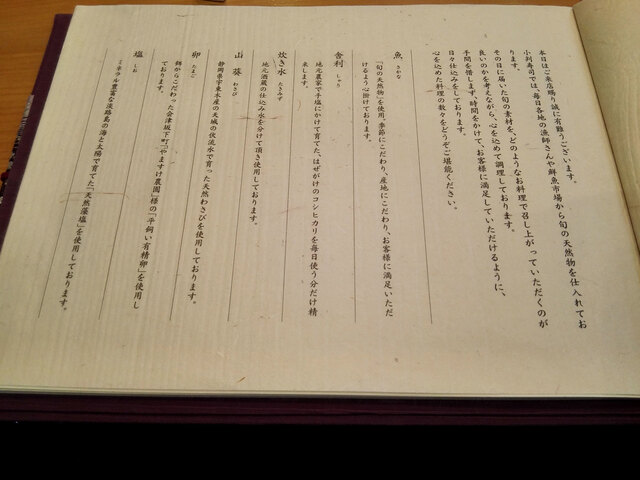 本日はご来店賜り誠に有難うございます。
小判寿司では、毎日各地の漁師さんや鮮魚市場から旬の天然物を仕入れてお
ります。
その日に届いた旬の素材を、どのようなお料理で召し上がっていただくのが
良いのかを考えながら、心を込めて調理しております。
手間を惜します、時間をかけて、お客様に満足していただけるように、
日々仕込みをしております。
心を込めた料理の数々をどうぞご堪能ください。
魚 さかな
「旬の天然物」を使用、季節にこだわり、産地にこだわり、お客様に満足いただ
けるよう心掛けております。
舎利 しゃり
地元農家で手塩にかけて育てた、はぜがけのコシヒカリを毎日使う分だけ精
米します。
炊き水 たきみず
地元酒蔵の仕込み水を分けて頂き使用しております。
山葵 わさび
静岡県宇東水産の天城の伏流水で育った天然わさびを使用しております。
卵 たまご
餌からこだわった会津坂下町「やますけ農園」様の「平飼い有精卵」を使用し
ております。
塩 しお
ミネラル豊富な淡路島の海と太陽で育てた「天然藻塩」を使用しております。